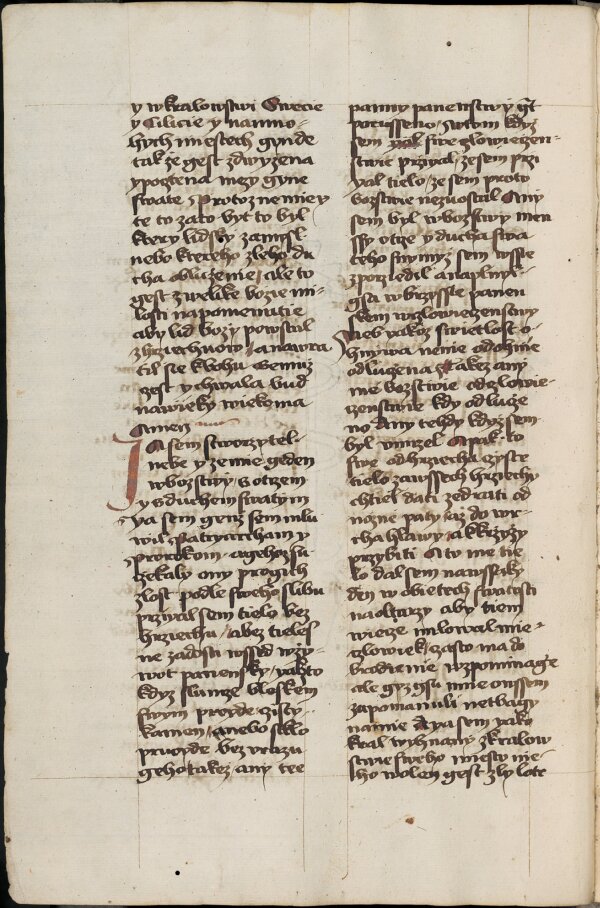 y w kralowstwi Swecie
y Cilicie y na mno-
hych miestech gynde
takze gest zdwyzena
y pogtena mezy gyne
swate Protoz nemiey
te to zato byt to byl
ktery lidsky zamysl
nebo ktereho zleho du
cha obluzenie ale to
gest zwelike bozie mi-
losti napomenutie
aby lid bozy powstal
z hrziechuow a nawra
til sie k bohu Gemuz
gest y chwala bud
na wieky wiekoma
Amen
Ja sem stworzytel
nebe y zemie geden
w bozstwy s otczem
y s duchem swatym
ya sem genz sem mlu
wil Patryarcham y
Prorokom a gehoz su
zekaly ony progich
zlost podle sweho slibu
przyial sem tielo bez
hrziechu a bez tieles
ne zadosti wssed w zy-
wot panensky yakzto
kdyz slunce bleskem
swym proyde czisty
kamen anebo sklo
proyde bez vrazu
geho takez any tee
panny panenstwy gt
porusseno. A w tom kdyz
sem swe czlowieczen-
stwie przyial, ze sem przi
yal tielo, ze sem proto
bozstwie nezuostal Any
sem byl w bozstwy men
ssy otcze y ducha swa
teho s nymyz sem wsse
zporziedil a naplnyl
gsa w brzysse panen
skem w czlowieczenstwy
Neb yakoz swietlost o-
hniwa nenie od ohnie
odluczena takez any
me bozstwie od czlowie-
czenstwie kdy odlucze
no Any tehdy kdyz sem
byl vmrzel A pak to
swe od hrziecha czyste
tielo za wssech hrziechy
chtiel dati zedrati od
nozne paty az do wr-
cha hlawy a k krzyzy
przybiti A to me tie
lo dal sem na wssaky
den w obietech swatosti
na oltarzy aby tiem
wiecze milowal mie
czlowiek, czasto ma do
brodienie wzpominage
ale gyz gsu mne owssem
zapomanuli netbagy
na mie A ya sem yako
kral wyhnany z kralow
stwie sweho miesto nie
ho wolen gest zly lotr